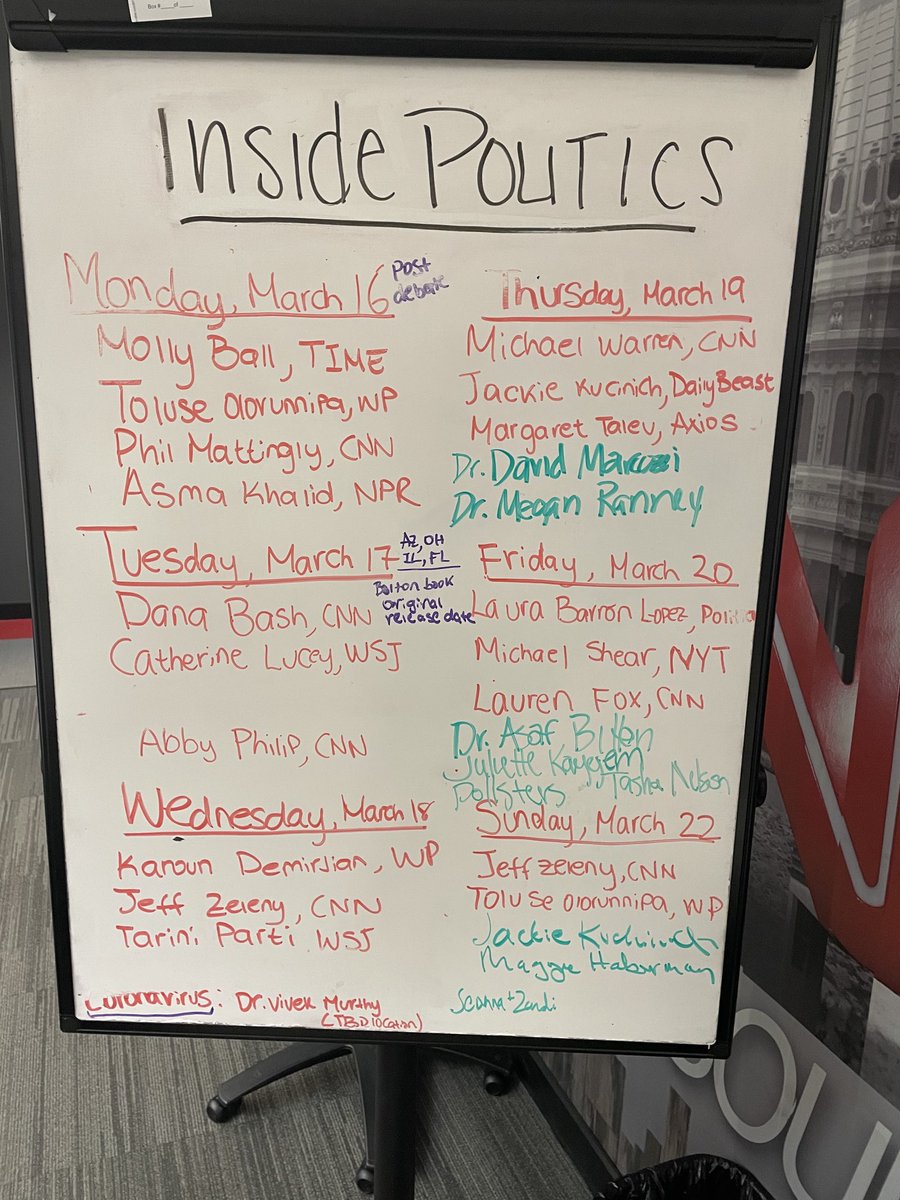 Box #____of____
Inside POLITICS
Monday, March 16 post debate
Molly Ball, TIME
Toluse Olorunnipa, WP
Phil Mattingly, CNN
Asma Khalid, NPR
Tuesday, March 17 AZ, OH IL, FL
Bolton book original release date
Dana Bash, CNN
Catherine Lucey, WSJ
Abby Philip, CNN
Wednesday, March 18
Karoun Demirjian, WP
Jeff Zeleny, CNN
Tarini Parti WSJ
Coronavirus: Dr. Vivek Murthy
(TBD location)
Thursday, March 19
Michael Warren, CNN
Jackie Kucinich, Daily Beast
Margaret Talev, Axios
Dr. David Marcozzi
Dr. Megan Ranney
Friday, March 20
Laura Barron Lopez, Politico
Michael Shear, NYT
Lauren Fox, CNN
Dr. Asaf Bitton
Juliette Kayyem
Pollsters Tasha Nelson
Sunday, March 22
Jeff Zeleny, CNN
Toluse Olorunnipa, WP
Jackie Kucinich
Maggie Haberman